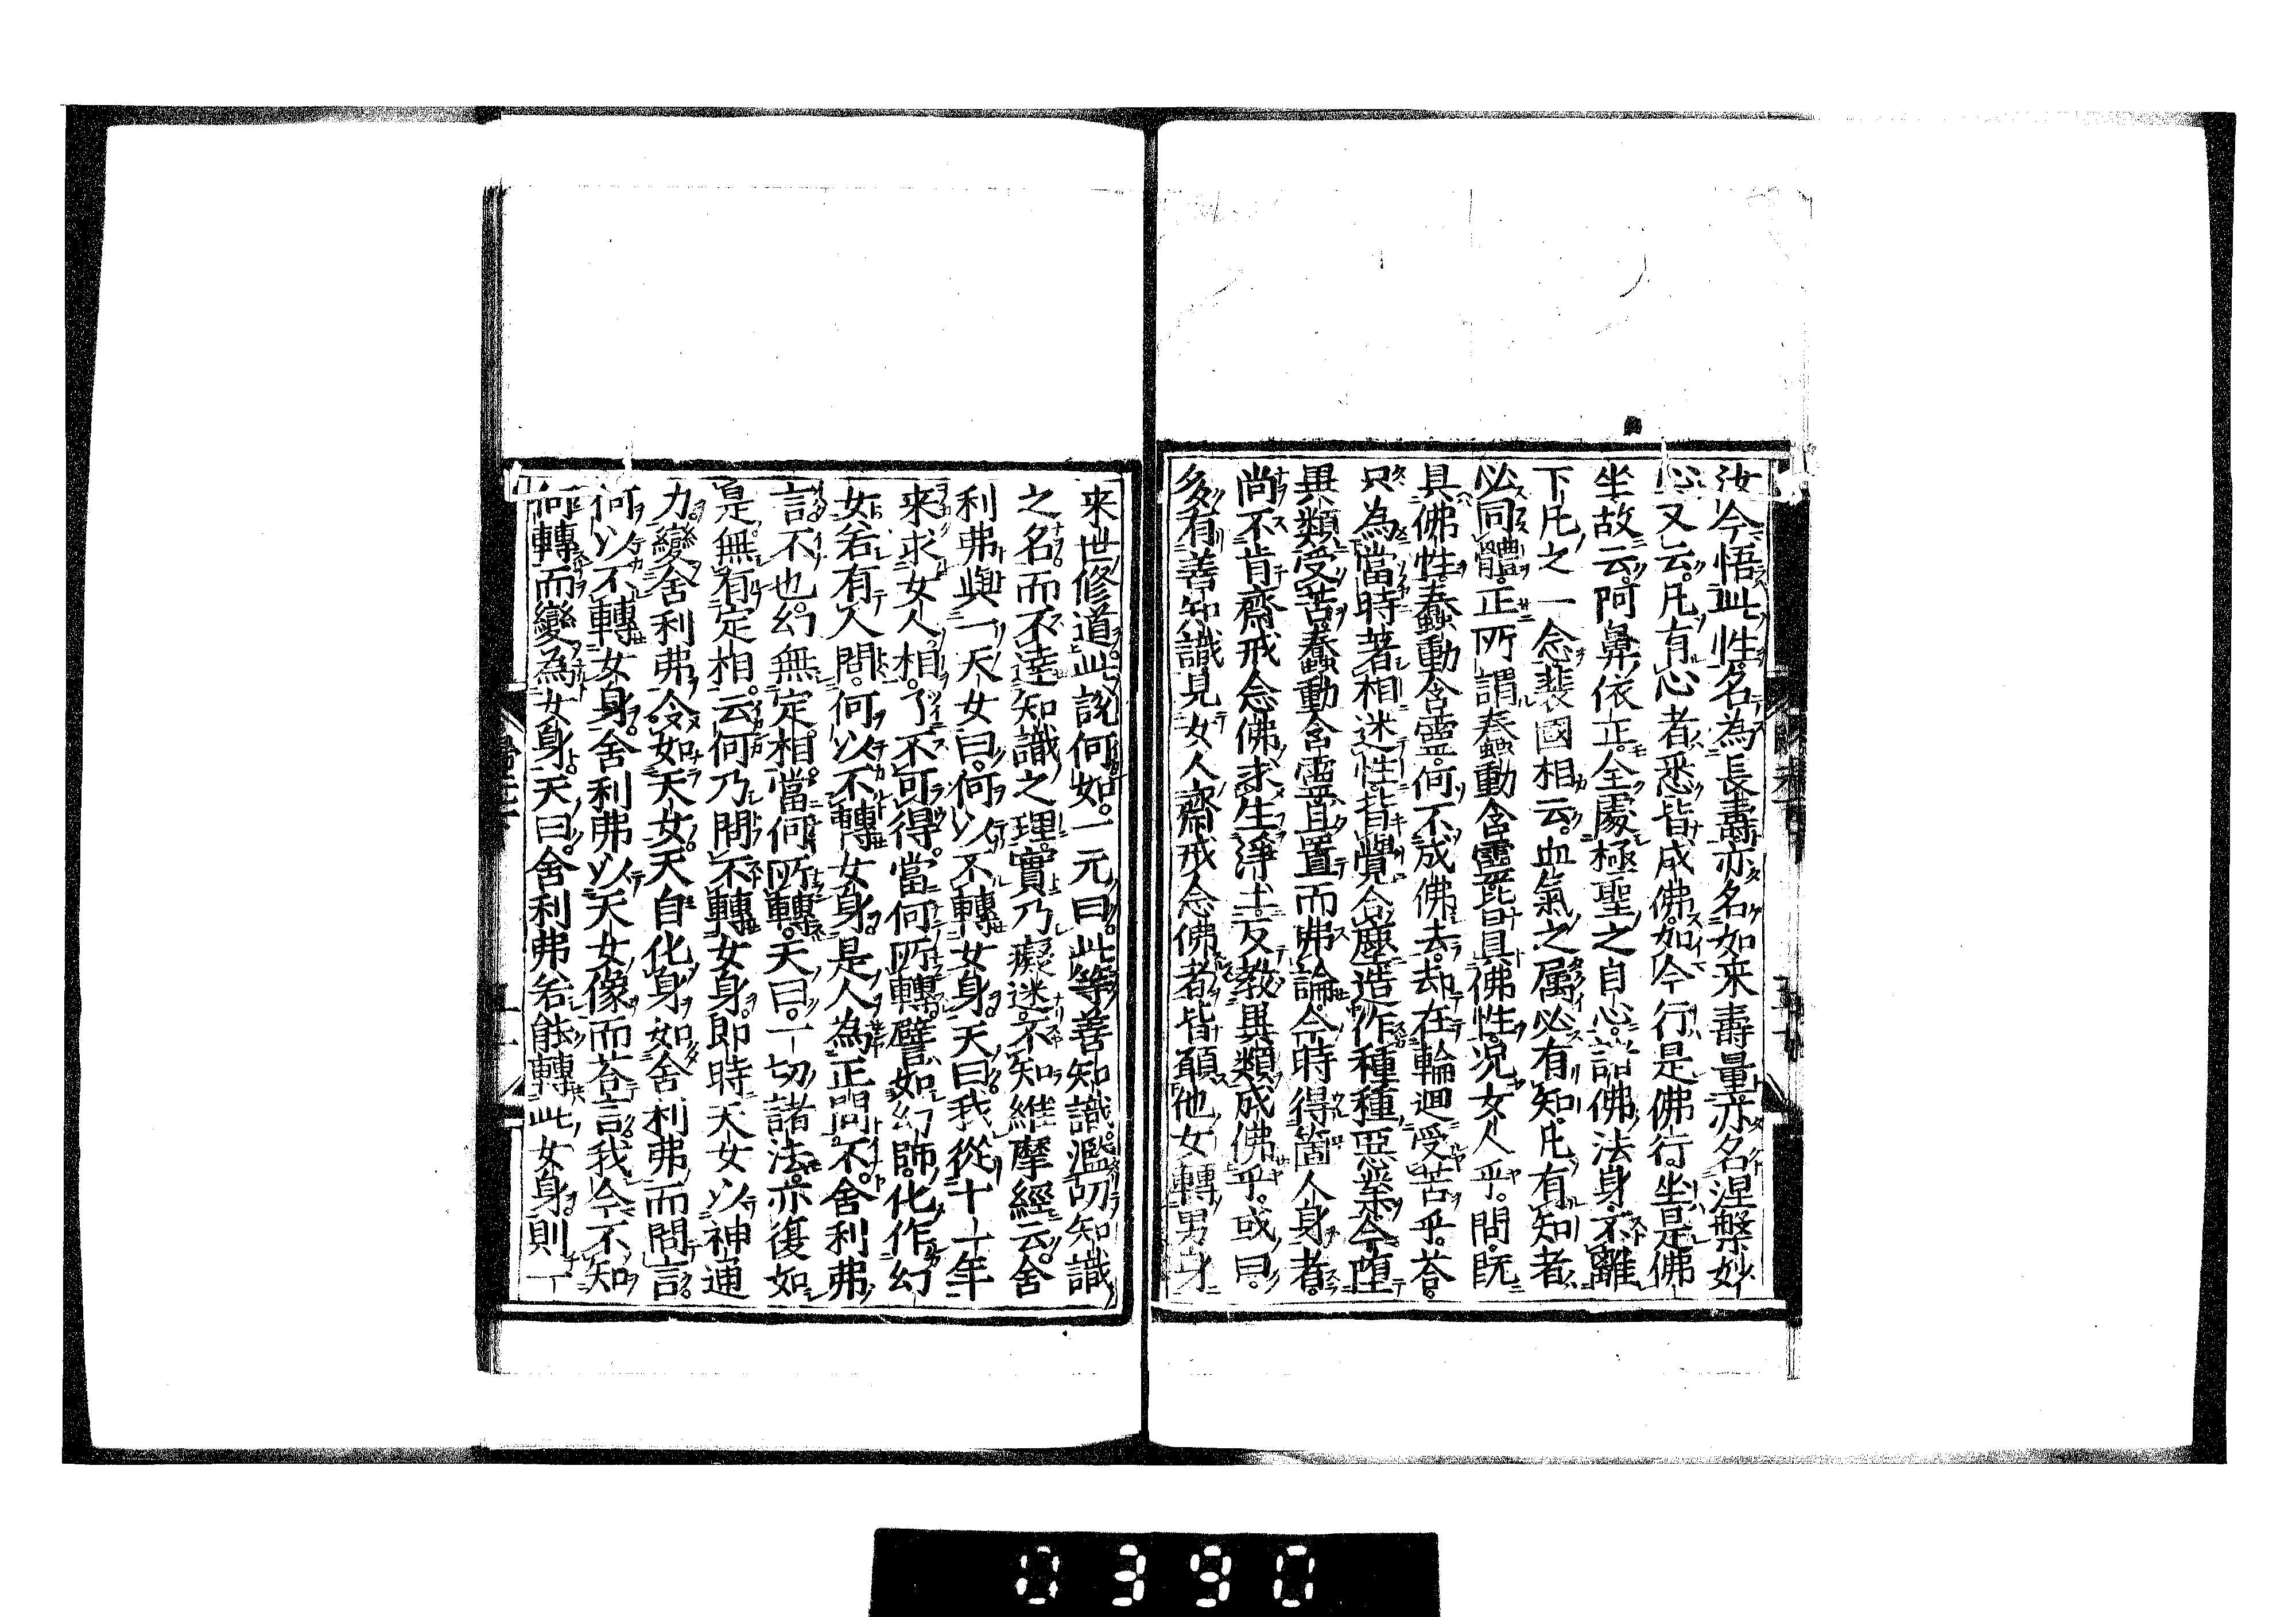 汝今悟此性名為長壽亦名如来壽量亦名涅槃妙
心又云凡有心者悉皆成佛如今行是佛行坐是佛
坐故云阿鼻依正全處極聖之自心諸佛法身不離
下凡之一念裴國相云血氣之属必有知凡有知者
必同體正所謂蠢動含靈皆具佛性况女人乎問既
具佛性蠢動含靈何不成佛去却在輪廻受苦乎荅
只為當時著相迷性背覺合塵造作種種惡業今墮
異類受苦蠢動含靈且置而弗論今時得箇人身者
尚不肯齋戒念佛求生淨土反教異類成佛乎或曰
多有善知識見女人齋戒念佛者皆願他女轉男身
来世修道此說何如一元曰此等善知識濫叨知識
之名而不達知識之理實乃癡迷不知維摩經云舍
利弗與一天女曰何以不轉女身天曰我從十二年
来求女人相了不可得當何所轉譬如幻師化作幻
女若有人問何以不轉女身是人為正問不舍利弗
言不也幻無定相當何所轉天曰一切諸法亦復如
是無有定相云何乃問不轉女身即時天女以神通
力變舍利弗令如天女天自化身如舍利弗而問言
何以不轉女身舍利弗以天女像而荅言我今不知
何轉而變為女身天曰舍利弗若能轉此女身則一
0390